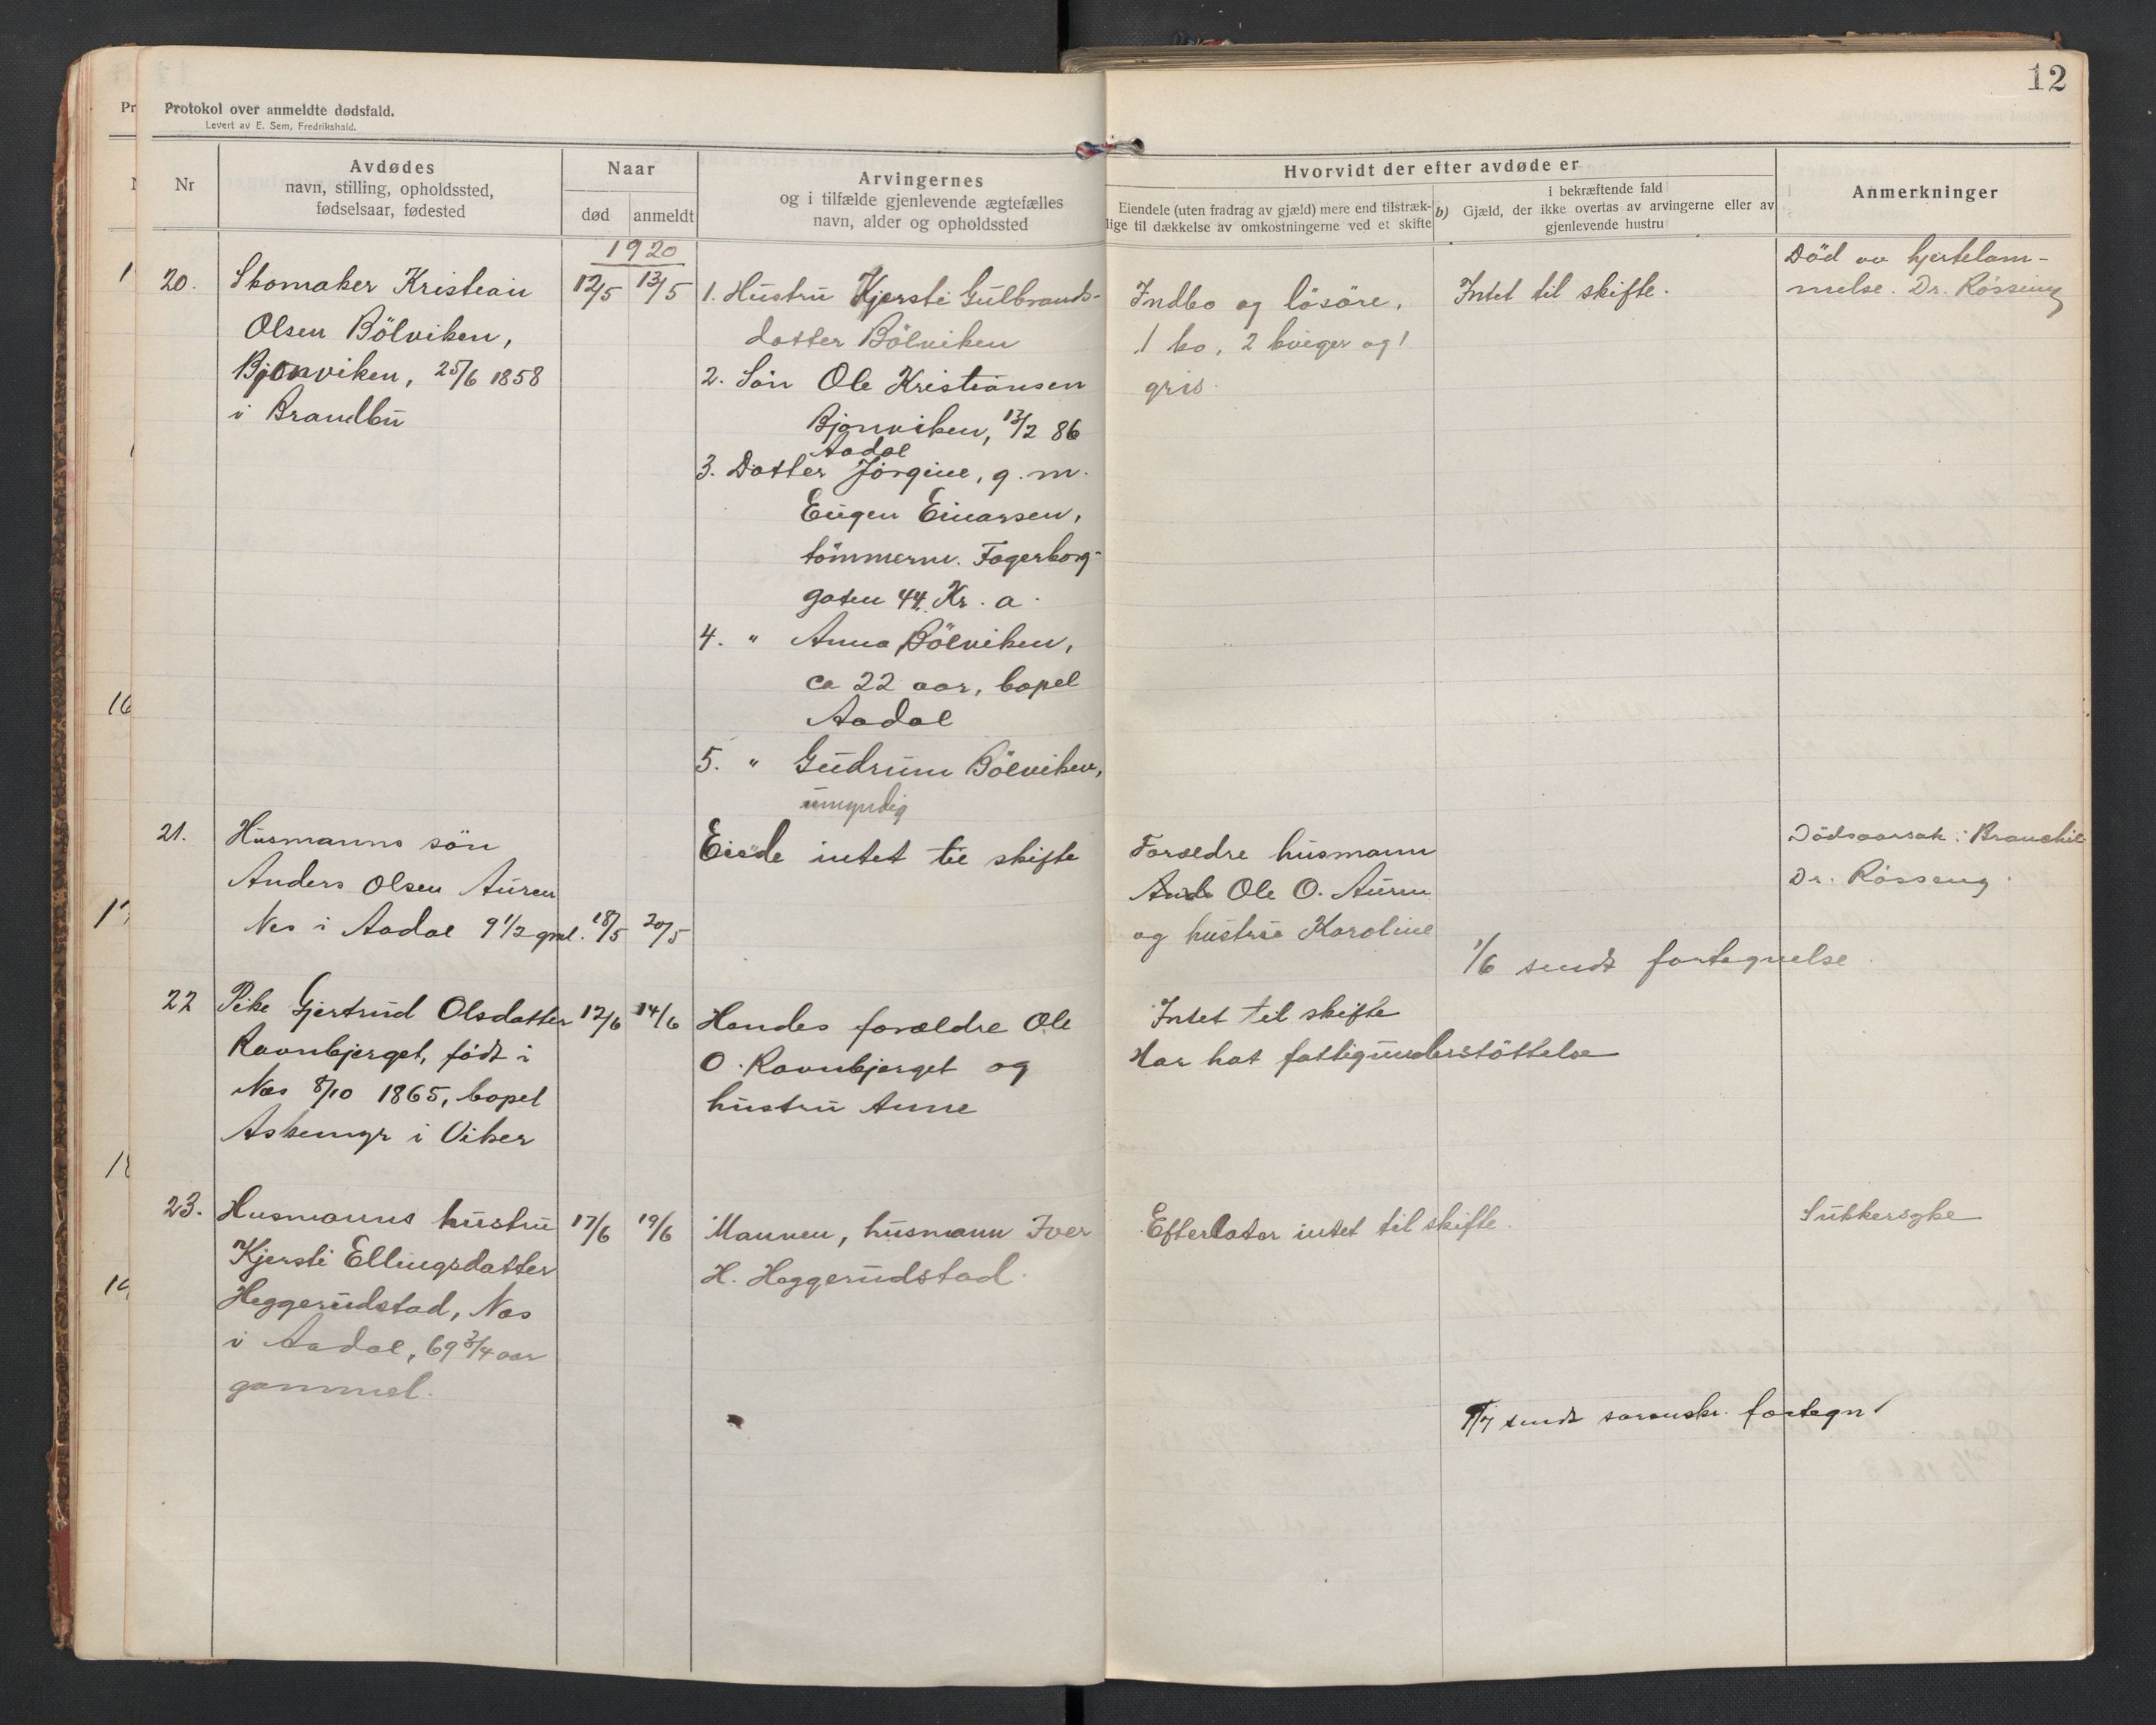 12
Pr
Protokol over anmeldte dødsfald.
Levert av E. Sem, Fredrikshald.
Nr
Avdødes
navn, stilling, opholdssted,
fødselsaar, fødested
Naar
død
anmeldt
Arvingernes
og i tilfælde gjenlevende ægtefælles
navn, alder og opholdssted
Hvorvidt der efter avdøde er
Eiendele (uten fradrag av gjæld) mere end tilstræk-
lige til dækkelse av omkostningerne ved et skifte
b)
i bekræftende fald
Gjæld, der ikke overtas av arvingerne eller av
gjenlevende hustru
Anmerkninger
1920
20.
Skomaker Kristian
Olsen Bölviken,
Bjonviken, 25/6 1858
i Brandbu
12/5
13/5
1. Hustru Kjersti Gulbrands-
datter Bölviken
2. Sön Ole Kristiansen
Bjonviken, 13/2 86
Aadal
3. Datter Jörgine, g. m.
Eugen Einarsen,
tömmerm. Fagerborg-
gaten 44. Kr. a.
4. " Anna Bölviken,
ca 22 aar, bopel
Aadal
5. " Gudrun Bölviken,
umyndig
Indbo og lösöre,
1 ko, 2 kviger og 1
gris.
Intet til skifte.
Död av hjertelam-
melse. Dr. Rössung
21.
Husmanns sön
Anders Olsen Auren
Nes i Aadal 9 1/2 gml.
18/5
20/5
Eiede intet til skifte
Forældre husmann
Ande Ole O. Auren
og hustru Karoline
1/6 sendt fortegnelse
Dödsaarsak: Bronchit
Dr. Rössung.
22
Pike Gjertrud Olsdatter
Ravnbjerget, födt i
Nes 8/10 1865, bopel
Askemyr i Viker
12/6
14/6
Hendes forældre Ole
O. Ravnbjerget og
hustru Anne
Intet til skifte
Har hat fattigunderstöttelse
23.
Husmanns hustru
Kjersti Ellingsdatter
Heggerudstad, Nes
i Aadal, 69 3/4 aar
gammel.
17/6
19/6
Mannen, husmann Iver
H. Heggerudstad.
Efterlater intet til skifte.
Sukkersyke
1/7 sendt sorenskr. fortegn
16